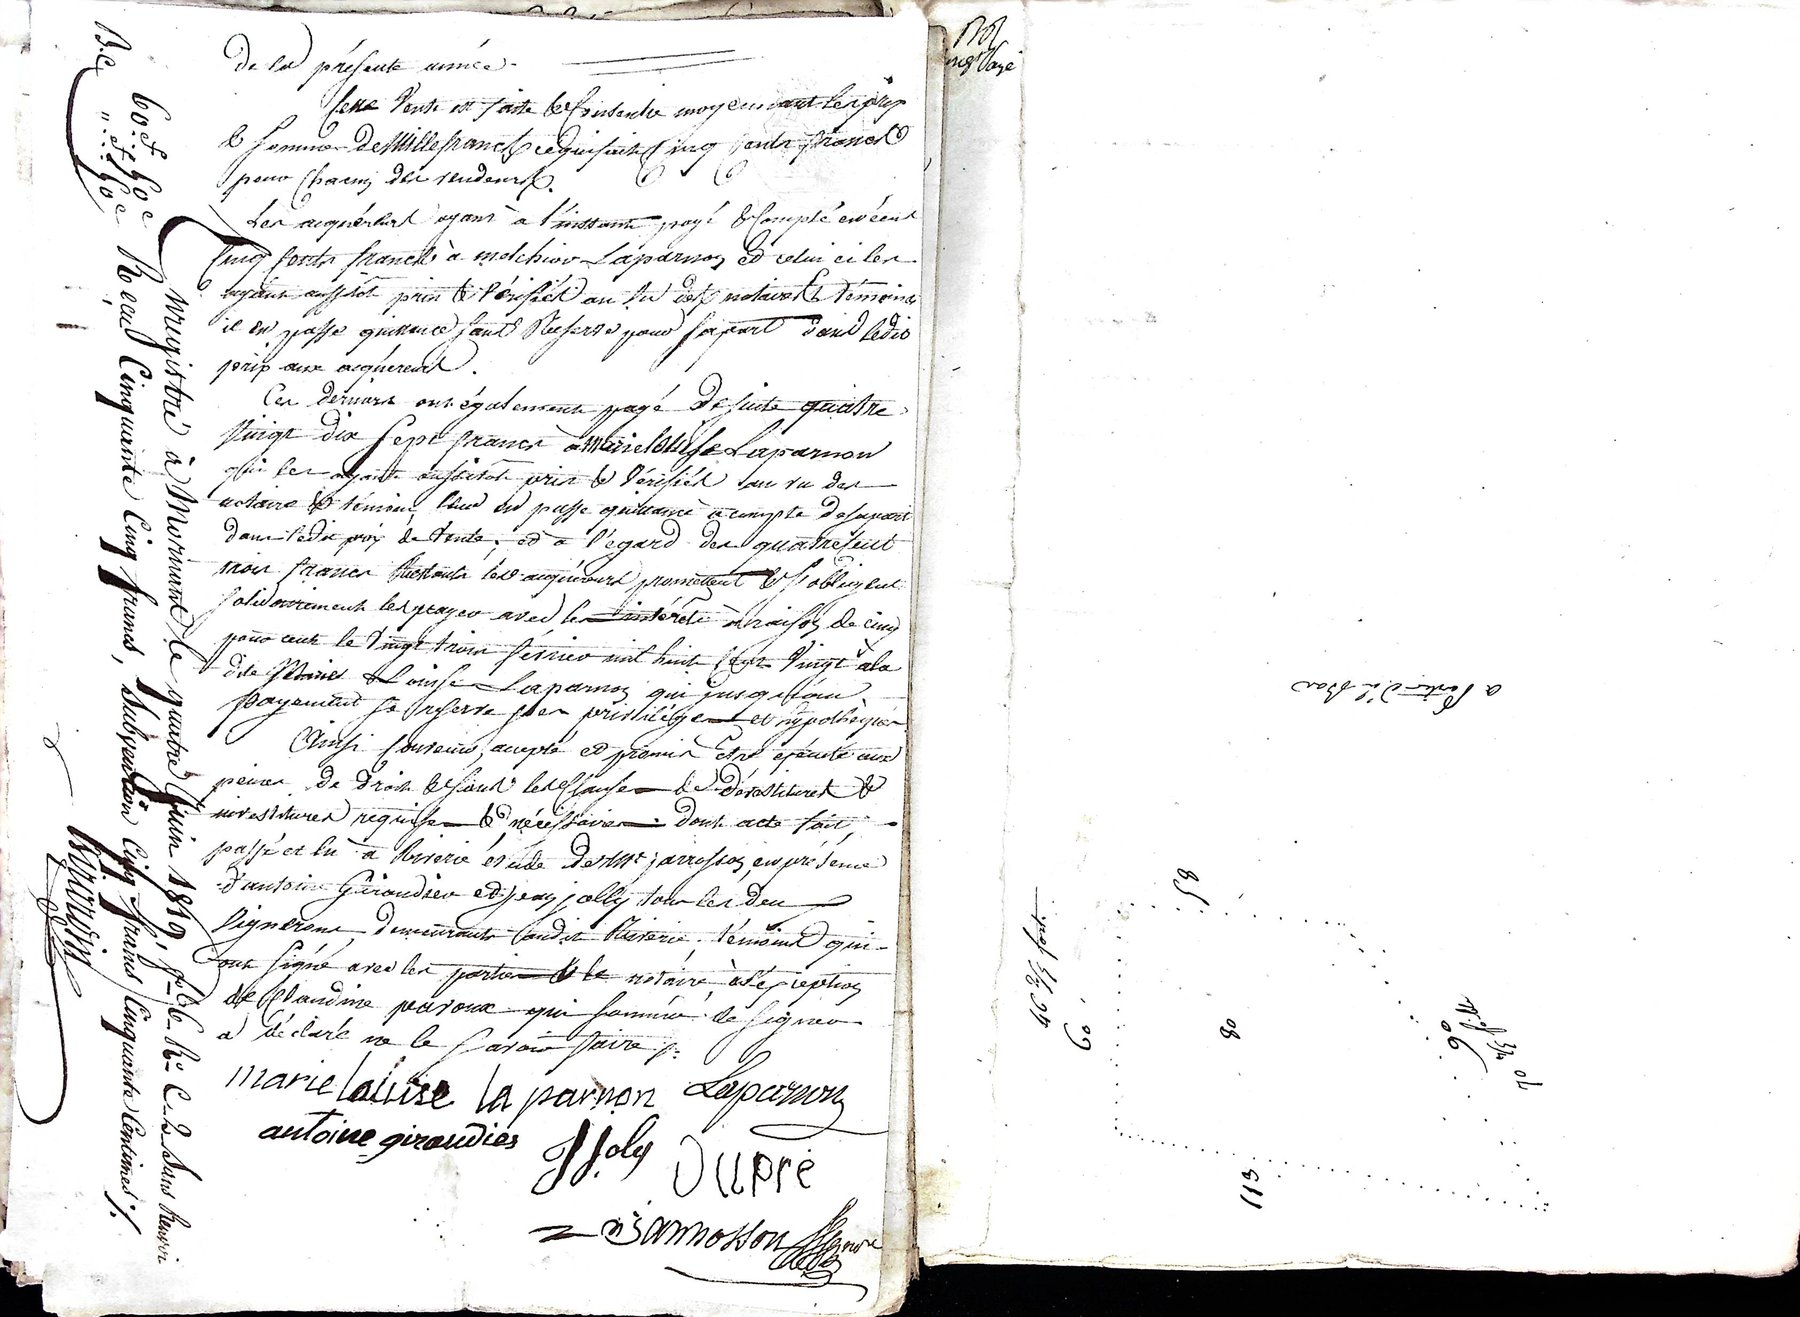 de la présente année.
Cette vente est faite & consentie moyennant les prix
& somme de Mille francs, ce qui fait cinq cents francs
pour chacun des vendeurs.
Les acquéreurs ayant à l'instant payé & compté
cinq cents francs à melchior Laparnon et celui ci les
ayant aussitôt pris & vérifiés au vu des notaire & témoins
il en passe quittance sans réserve pour sa part dans ledit
prix aux acquéreurs.
Ces derniers ont également payé de suite quatre
vingt dix sept francs à marie Louise Laparnon
qui les ayant aussitôt pris & vérifiés au vu des
notaire & témoins, leur en passe quittance à compte de sa part
dans ledit prix de vente; et à l'égard des quatre cent
trois francs restants les acquéreurs promettent & s'obligent
solidairement les payer avec les intérêts à raison de cinq
pour cent le vingt trois février mil huit cent vingt à la
dite Marie Louise Laparnon qui jusqu'au
payement se réserve ses privilèges et hypothèques
Ainsi convenu, accepté et promis être exécuté aux
peines de droit & sous les clauses de dévestitures &
investitures requises & nécessaires. dont acte fait,
passé et lu à Riverie étude de Mr. jarrosson, en présence
d'antoine Giraudier et jean jolly tous les deux
vignerons, demeurants audit Riverie, témoins qui
ont signé avec les parties & le notaire, à l'exception
de Claudine peroux qui sommée de signer
a déclaré ne le savoir faire ./.
marie louise la parnon Laparnon
antoine giraudier JJoly Dupré
Jarrosson
B.C.
60f. 50c
". 5f. 50c
Enregistré à Mornant le quatre juin 1819 fo. 66 Ro. C. 2 sans renvoi
Reçu Cinquante Cinq francs, subvention Cinq francs Cinquante Centimes ./.
85
60
80
90
113